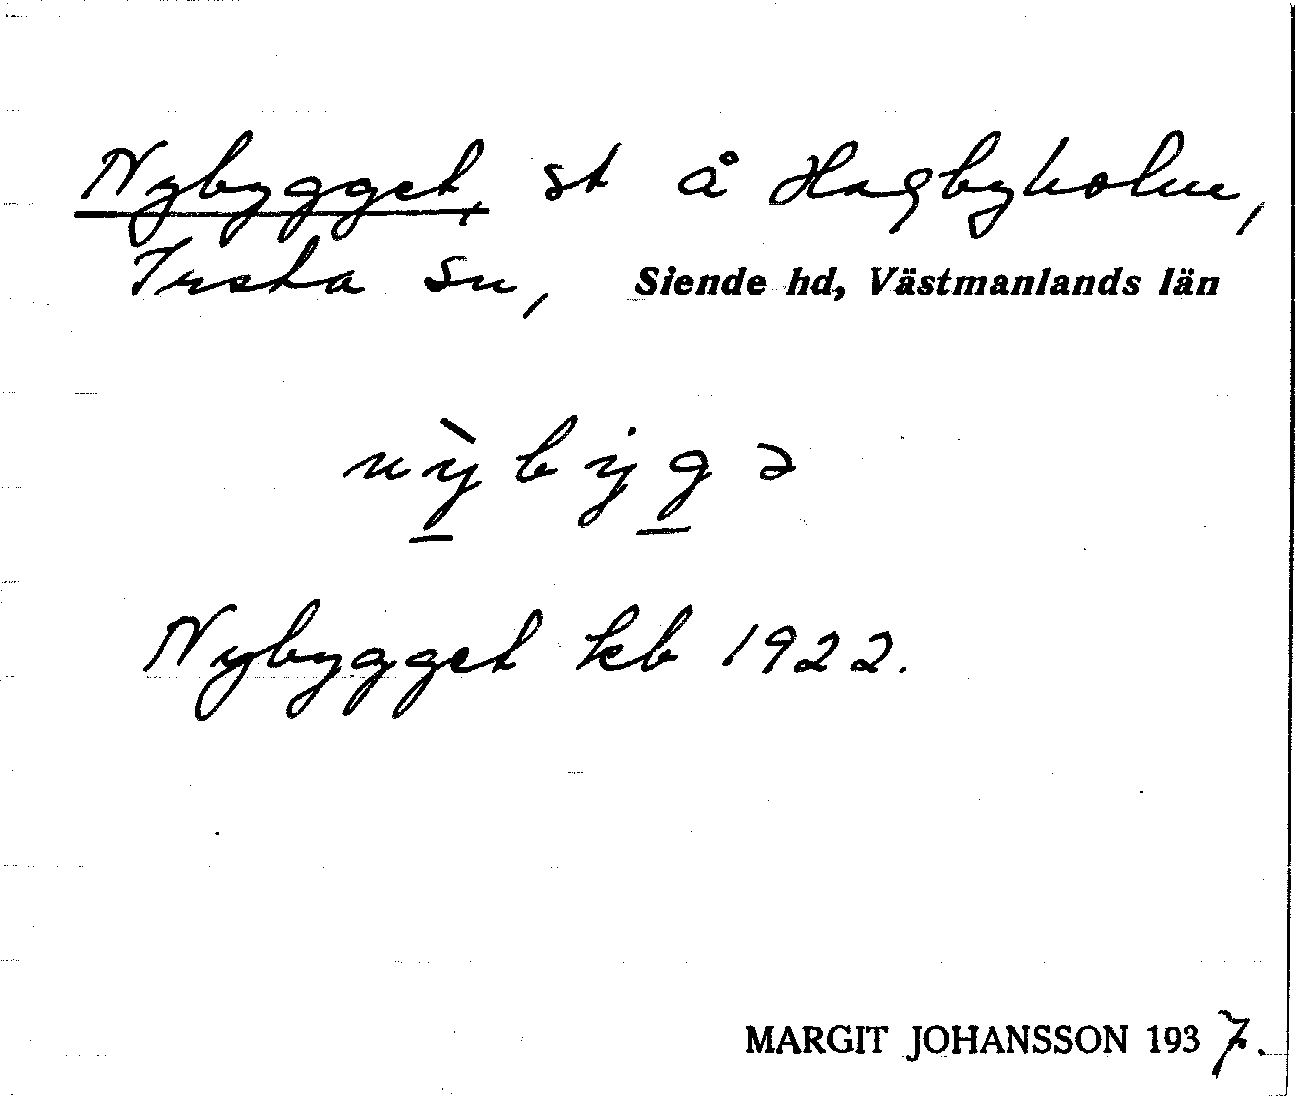 Nybygget, st å Hagbyholm,
Irsta sn, Siende hd, Västmanlands län
nỳbygə
Nybygget kb 1922.
MARGIT JOHANSSON 1937.